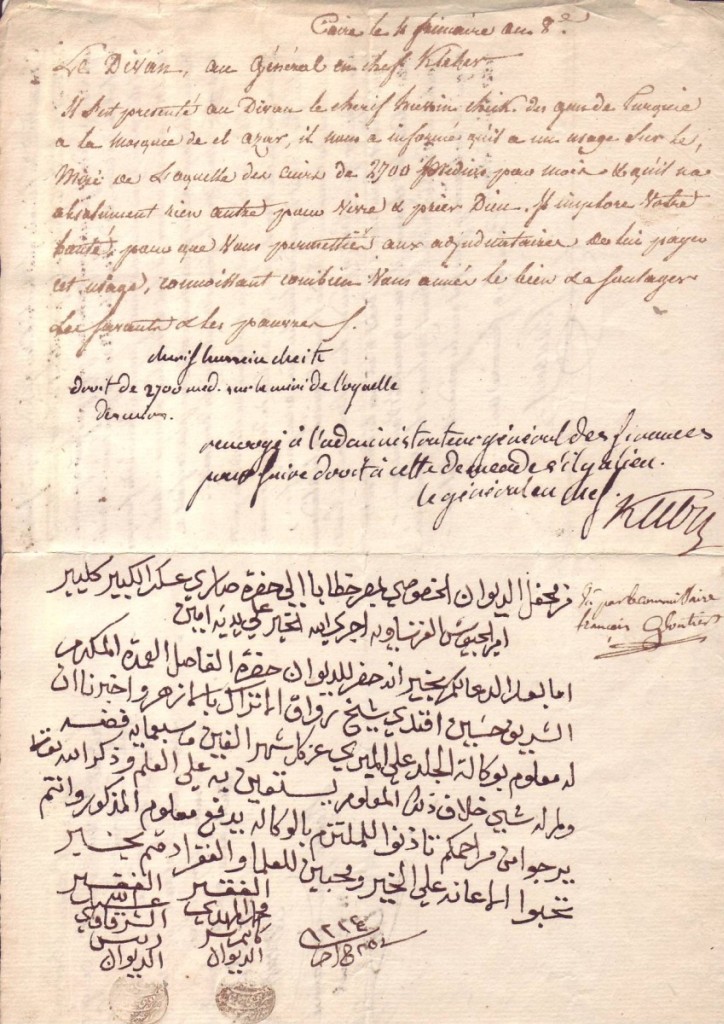 Caire le 4 frimaire an 8.e
Le Divan, au Général en chef Kleber
Il s'est presenté au Divan le cherif hussein cheik du de Turquie
a la mosquée de el azar, il nous a informé qu'il a un usage sur le
Miri de L'oquelle des cuirs de 2700 par mois & qu'il na
absolument rien autre pour vivre & prier Dieu. Il implore Votre
bonté, pour que Vous permettiés aux adjudicataires de lui payer
cet usage, connoissant combien Vous aimés le bien & a soulager
Les savants & les pauvres
cherif hussein cheik
droit de 2700 med. sur le miri de l'oquelle
des cuirs.
renvoyé à l'administrateur général des finances
pour faire droit à cette demande s'il y a lieu.
le général en chef
Kleber
من محفل الديوان الخصوصي بمصر خطابا الي حضرة صاري عسكر الكبير كليبر
امير الجيوش الفرنساويه اجري الله الخير علي يديه امين
Vu par le commissaire
français Gloutier
اما بعد الدعا لكم بخير انه حضر للديوان حضرة الفاضل العمدة المكرم
الشريف حسين افندي شيخ رواق الاتراك بالازهر واخبرنا ان
له معلوم بوكالة الجلد علي الميري عن كل شهر الفين وسبعمايه فضه
وله شي خلاف ذلك المعلوم يستعين به علي العلم وذكر الله
يرجوا من مراحمكم تاذنوا للملتزم بالوكاله يدفع معلوم المذكور وانتم
تحبوا الاعانه علي الخير ومحبين للعلما والفقرا دمتم بخير
الفقير
عبد الله
الشرقاوي
ريس
الديوان
الفقير
محمد المهدي
كاتم سر
الديوان